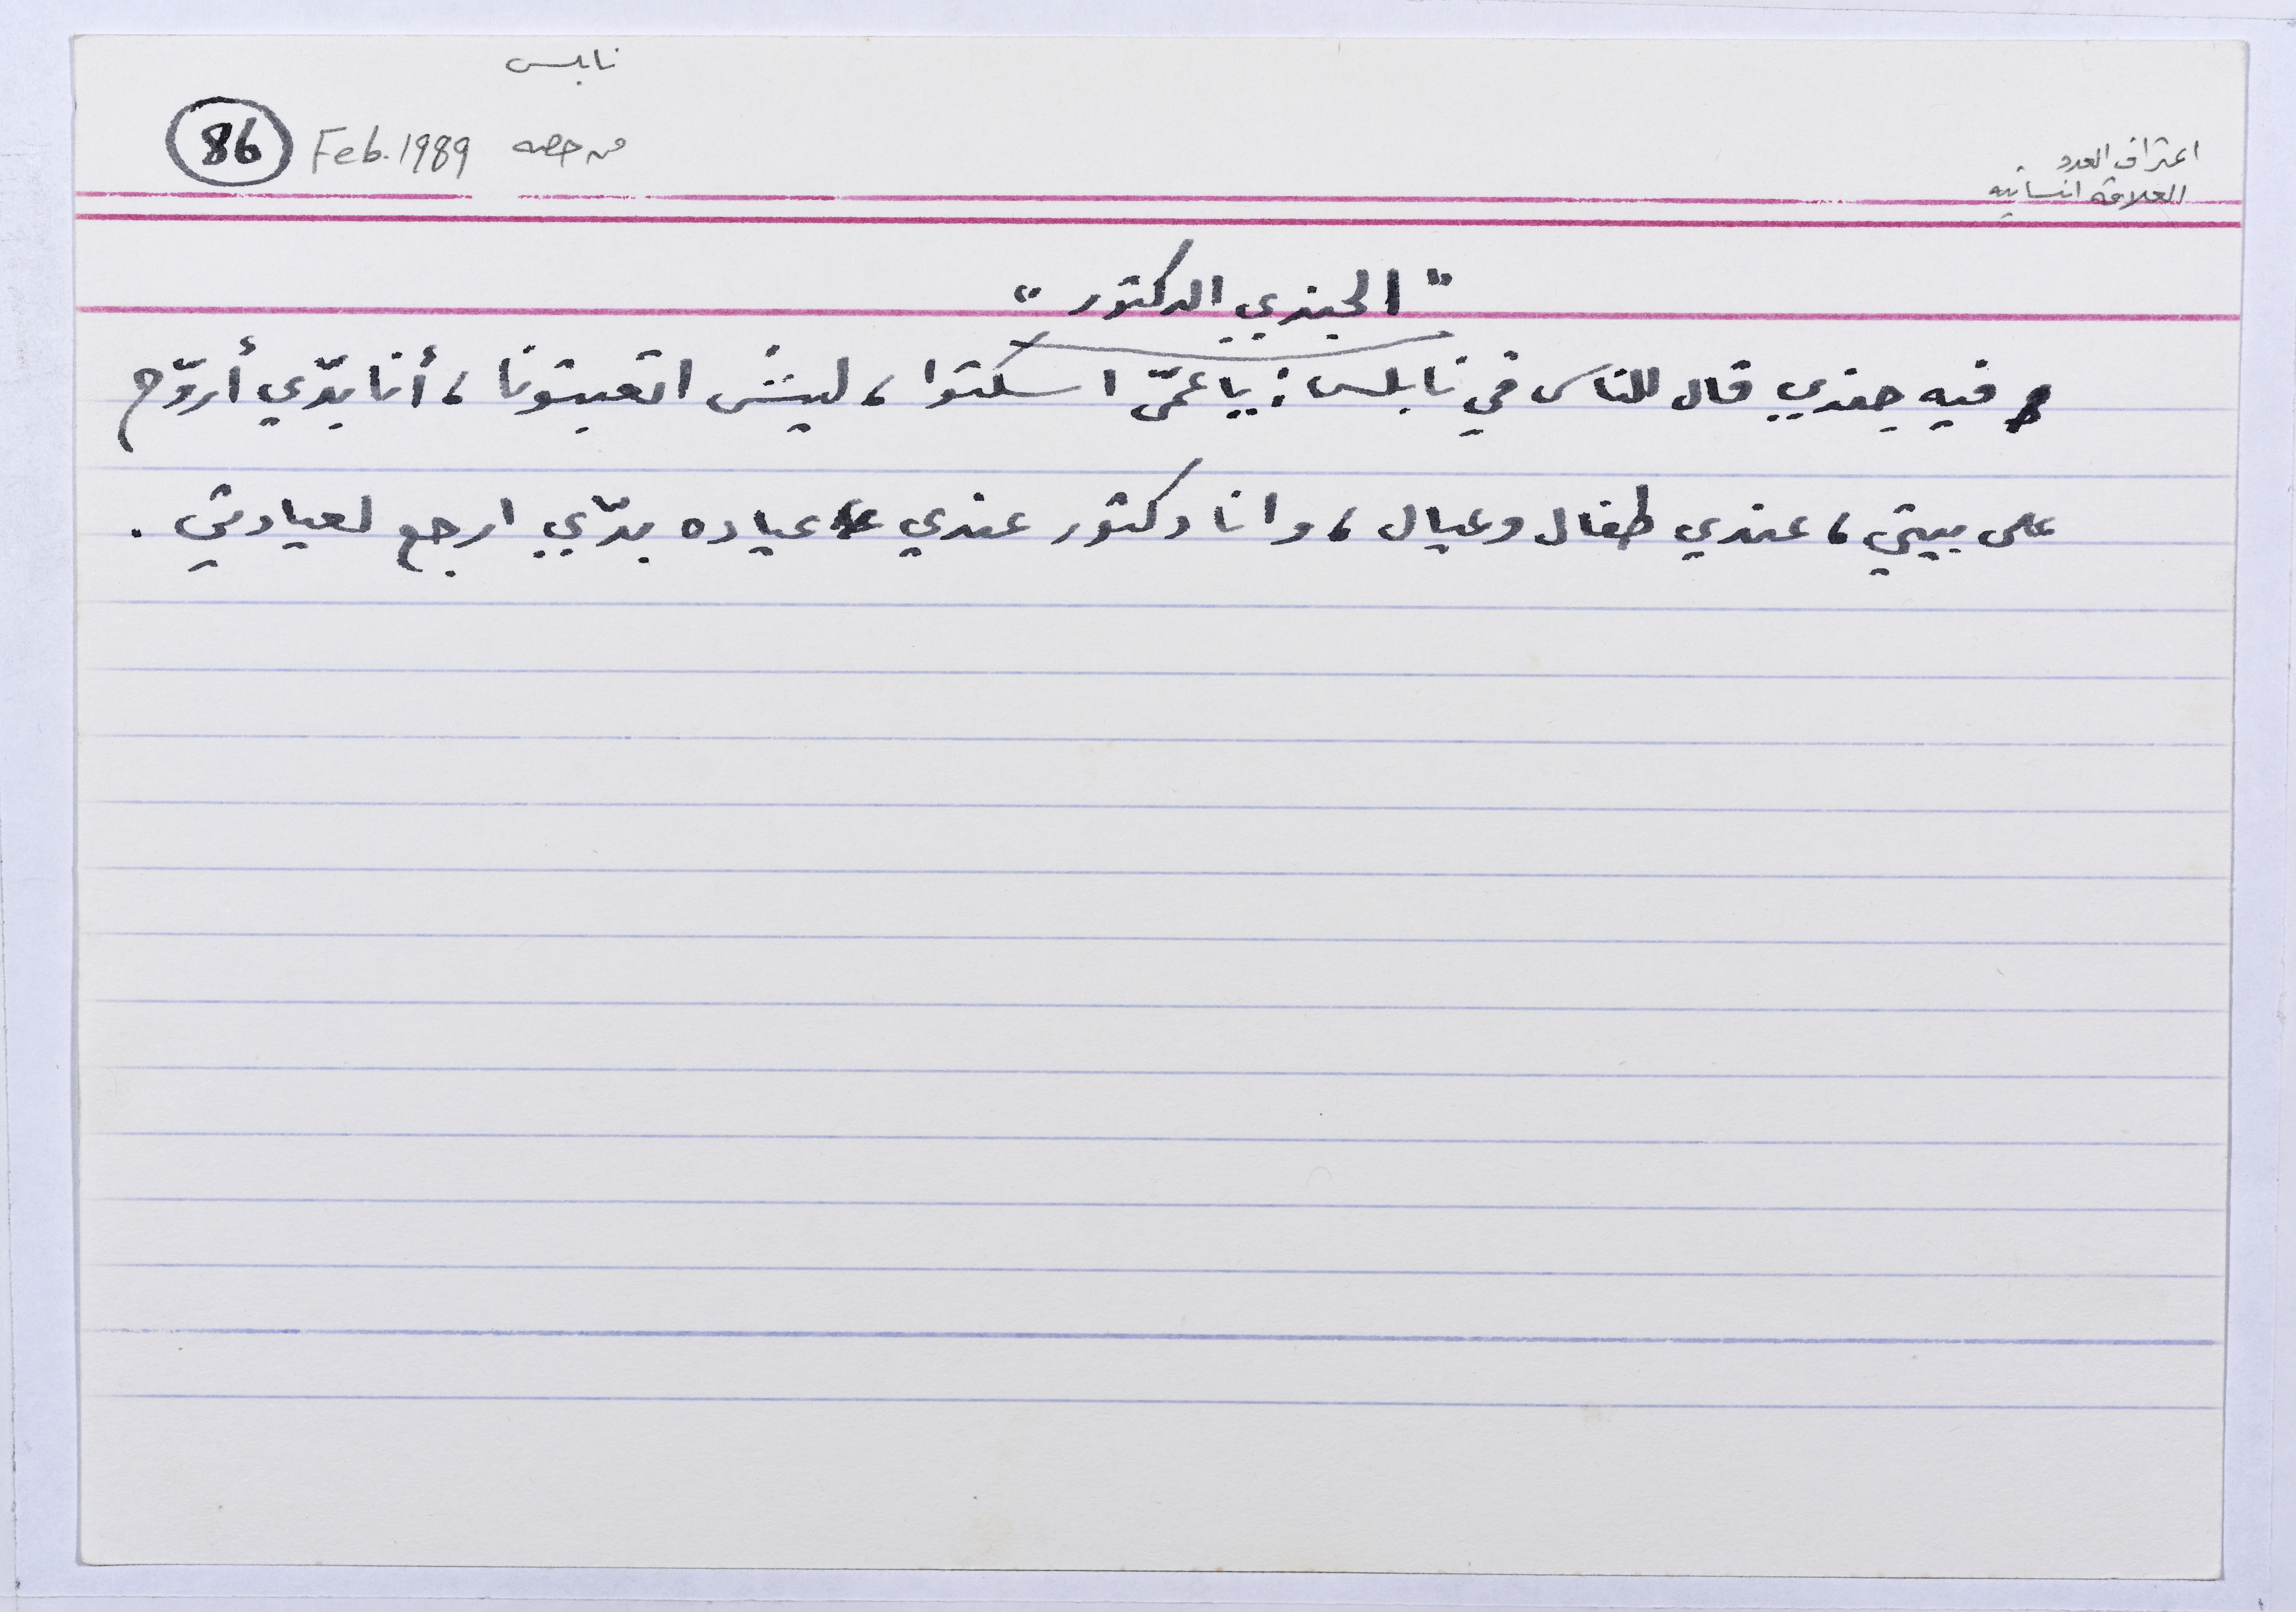 نابلس
86 Feb. 1989 من حصه
اعتراف العدو
العلاقة انسانيه
"الجندي الدكتور"
فيه جندي قال للناس في نابلس: يا عمّي اسكتوا، ليش اتعبتونا، أنا بدّي أروّح
على بيتي، عندي طفال وعيال، وانا دكتور عندي عياده بدّي ارجع لعيادتي.